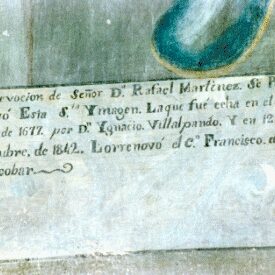 rvocion de Señor D.n Rafael Martinez. Se
vó Esta S.ta Ymagen. La que fue echa en el
de 1677. por D.n Ygnacio Villalpando. Y en 12
bre, de 1842. Lorrenovó el C.o Francisco.
cobar